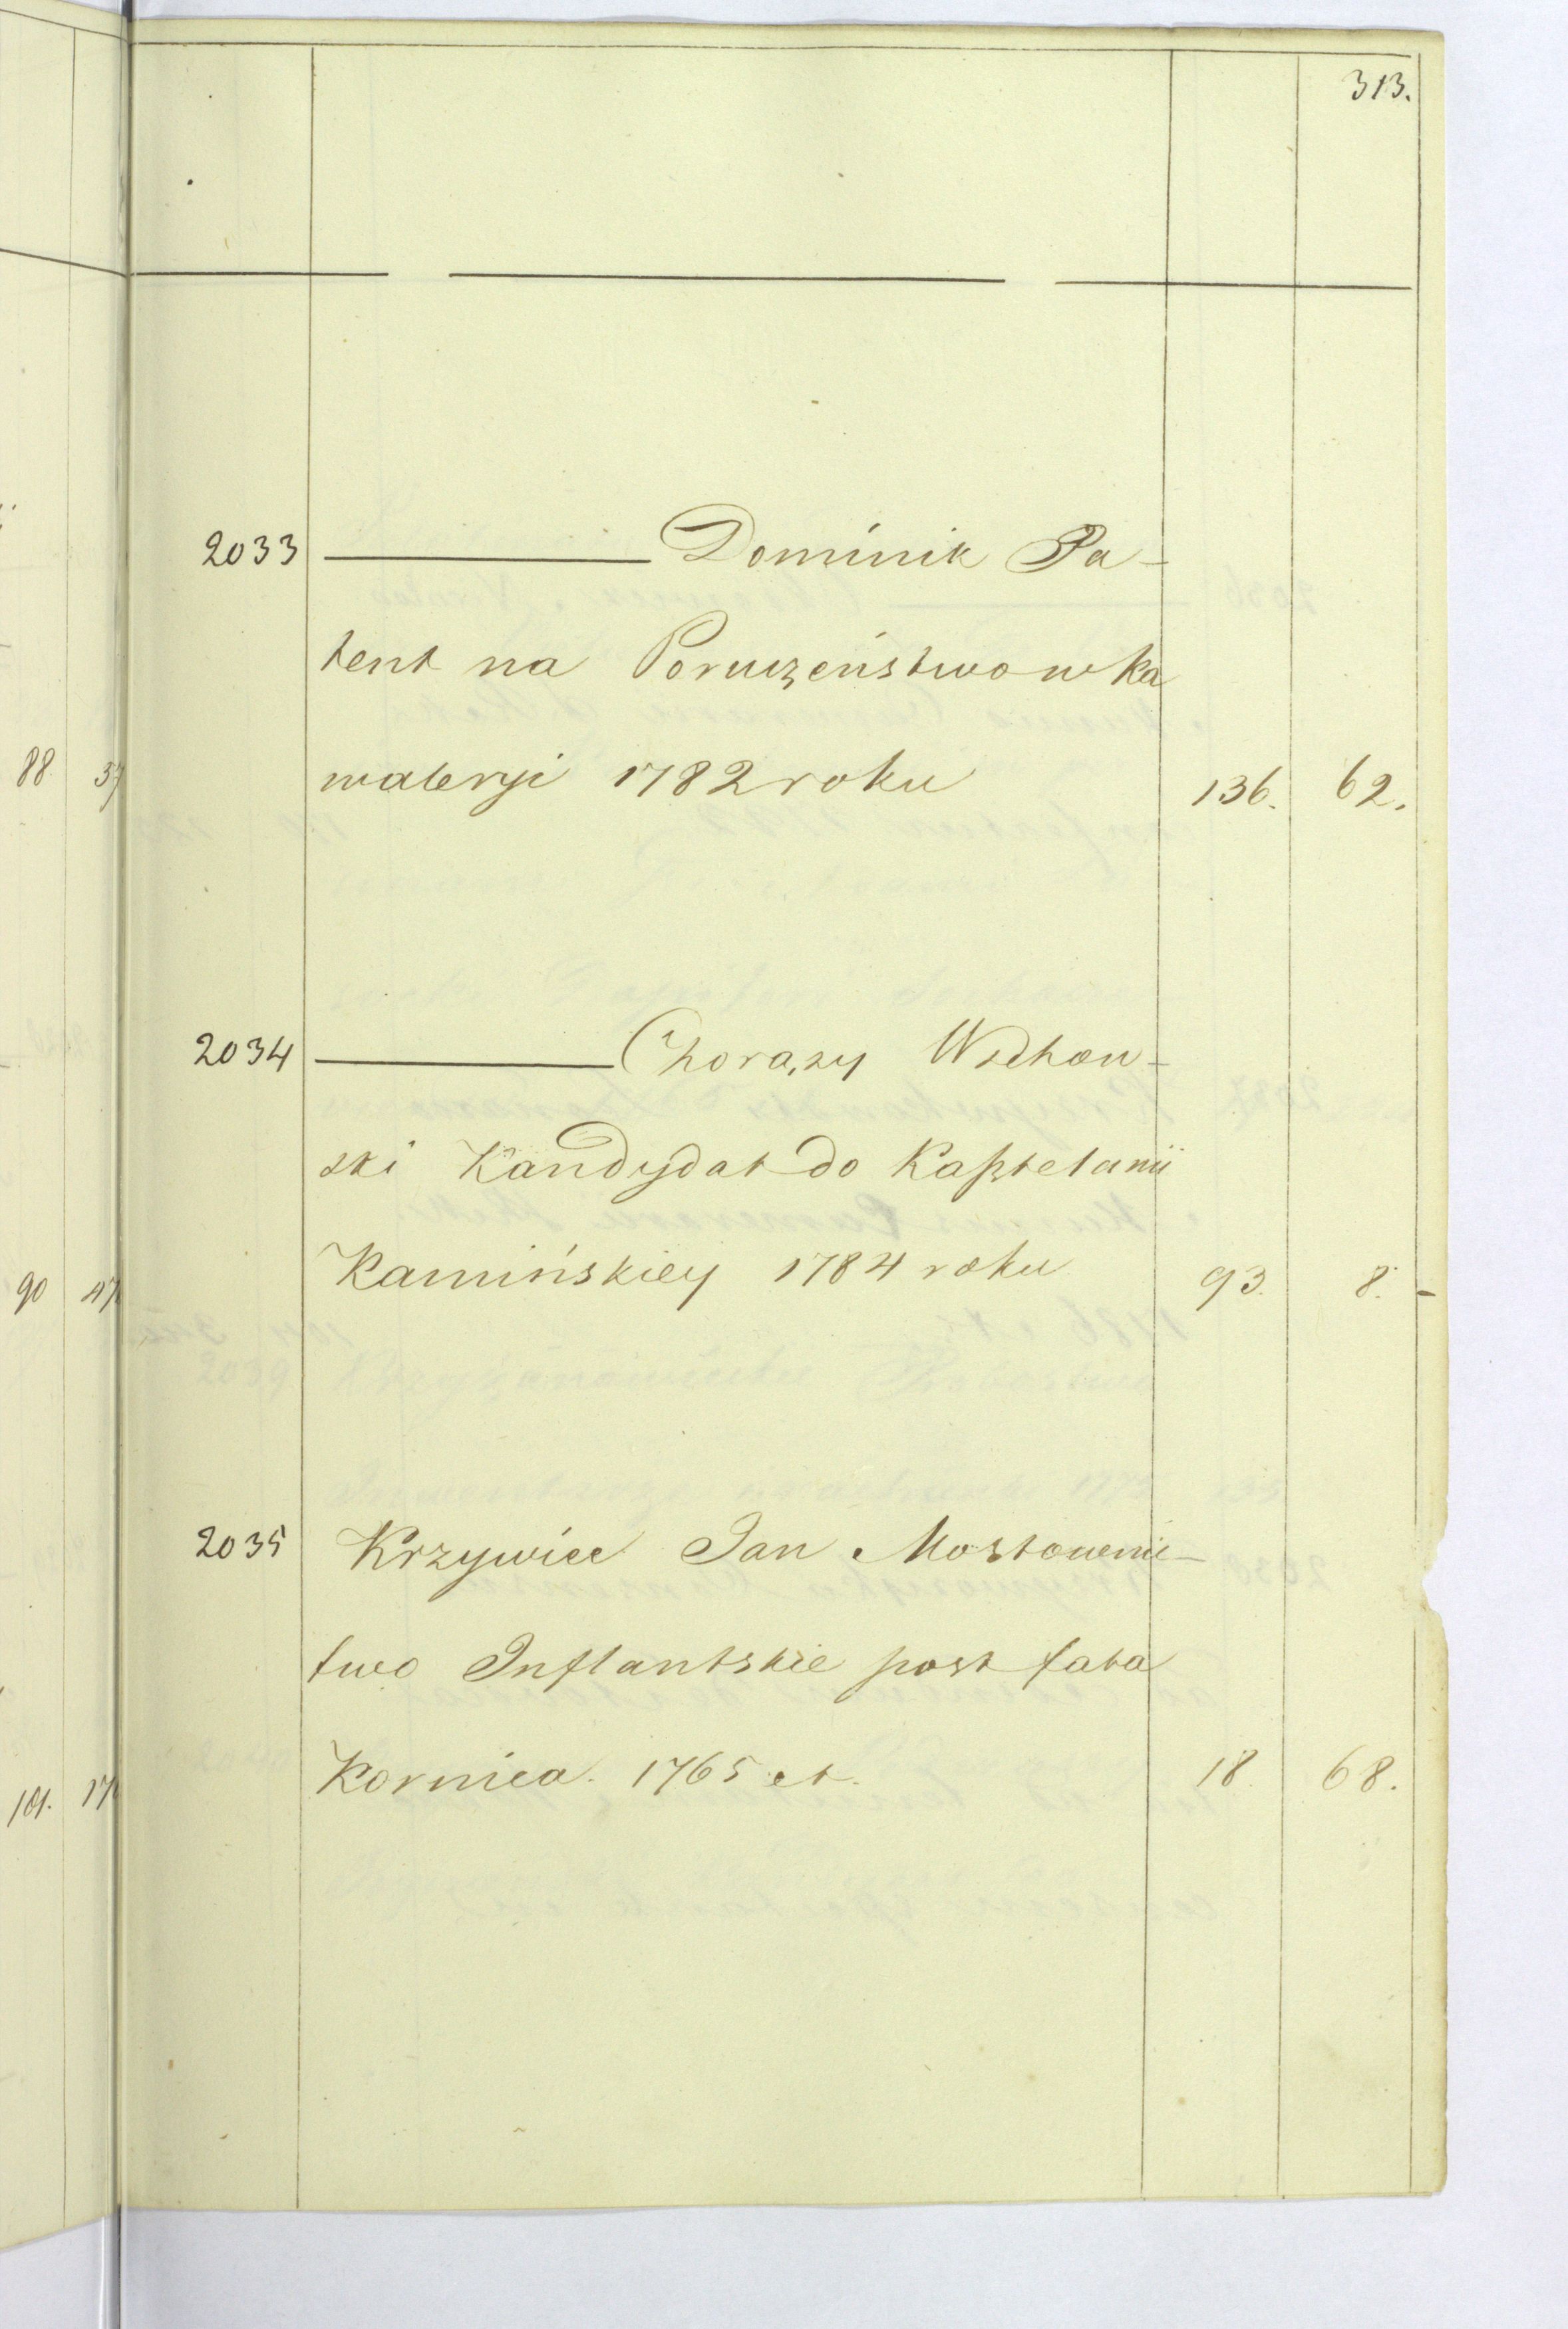 313.
2033 ——— Dominik Pa-
tent na Poruczeństwo w ka
waleryi 1782 roku 136. 62.
2034 ——— Chorąży Wschow-
ski Kandydat do Kasztelanii
Kamińskiey 1784 roku 93. 8. -
2035 Krzywiec Jan Mostownic-
two Inflantskie post fata
Kornica. 1765 et. 18. 68.
88 37
90 47
101. 17